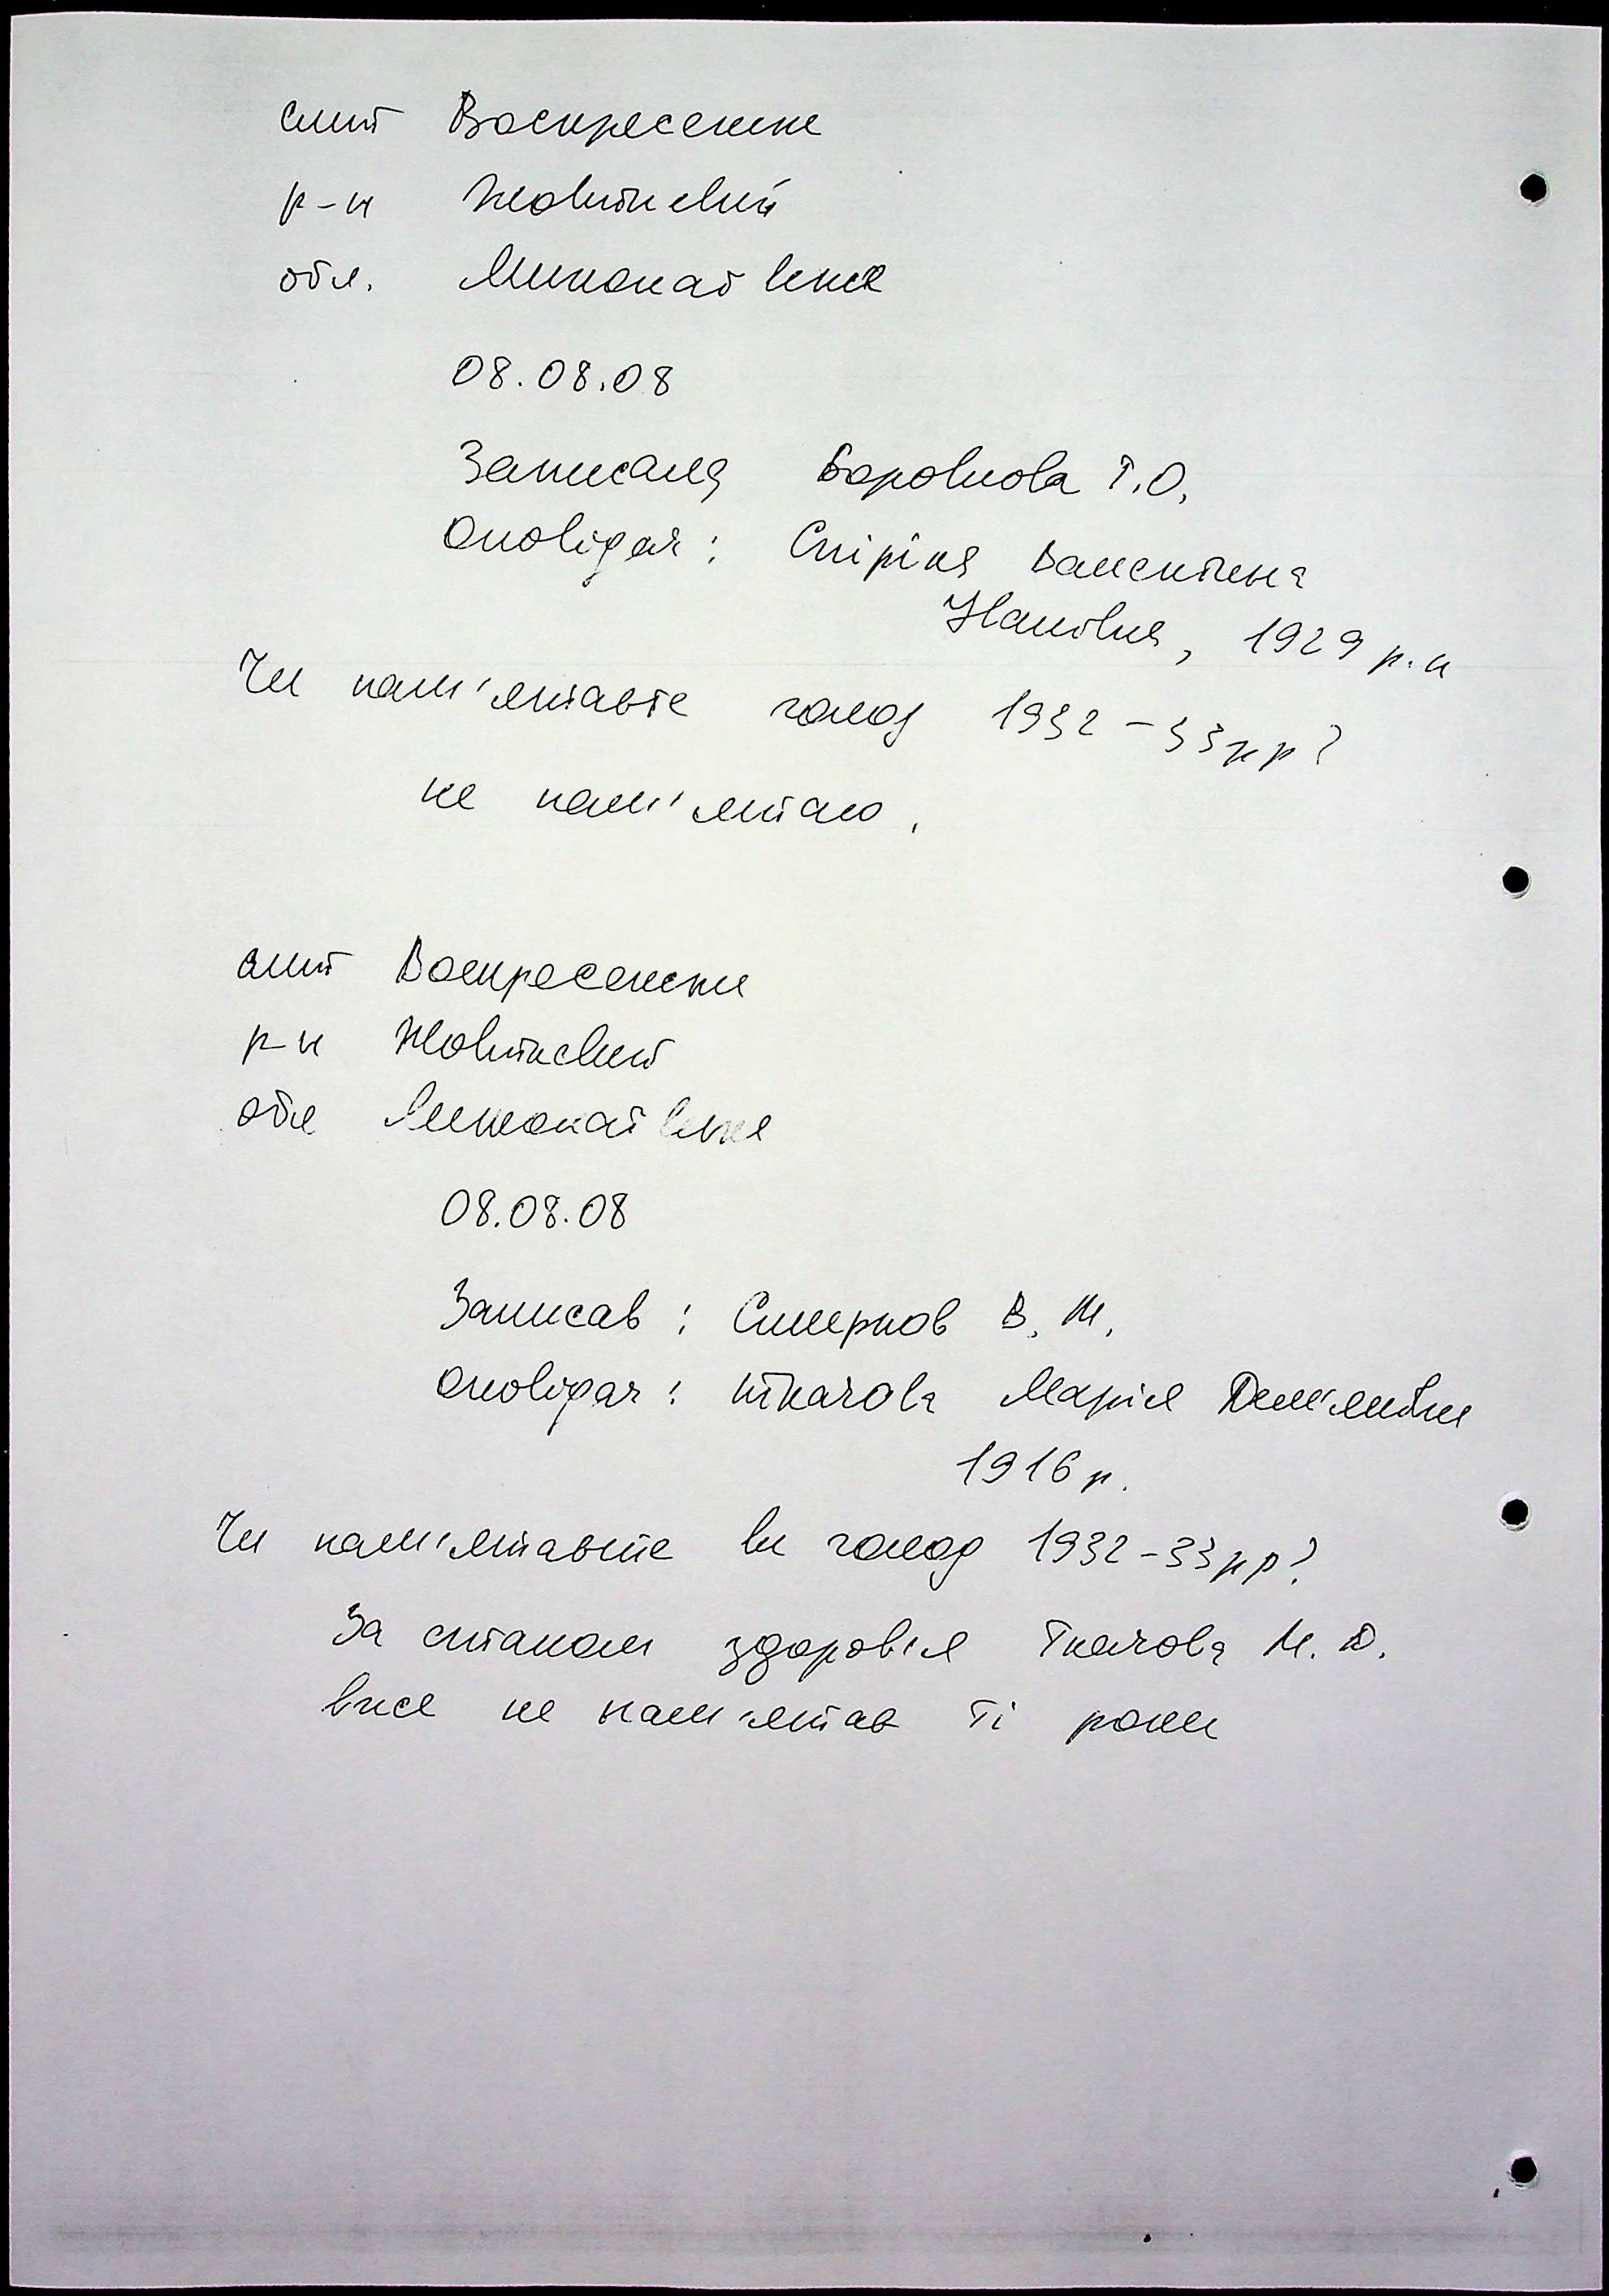 смт Воскресенське
р-н Жовтневий
обл. Миколаївська
08.08.08
Записала Боровкова Т.О.
Оповідач: Спіріна Валентина
Іванівна, 1929 р.н
Чи пам'ятаєте голод 1932-33рр?
не пам'ятаю.
смт Воскресенське
р-н Жовтневий
обл Миколаївська
08.08.08
Записав: Смирнов В. М.
Оповідач: Ткачова Марія Дем'янівна
1916 р.
Чи пам'ятаєте ви голод 1932-33рр?
За станом здоров'я Ткачова М. Д.
вже не пам'ятає ті роки